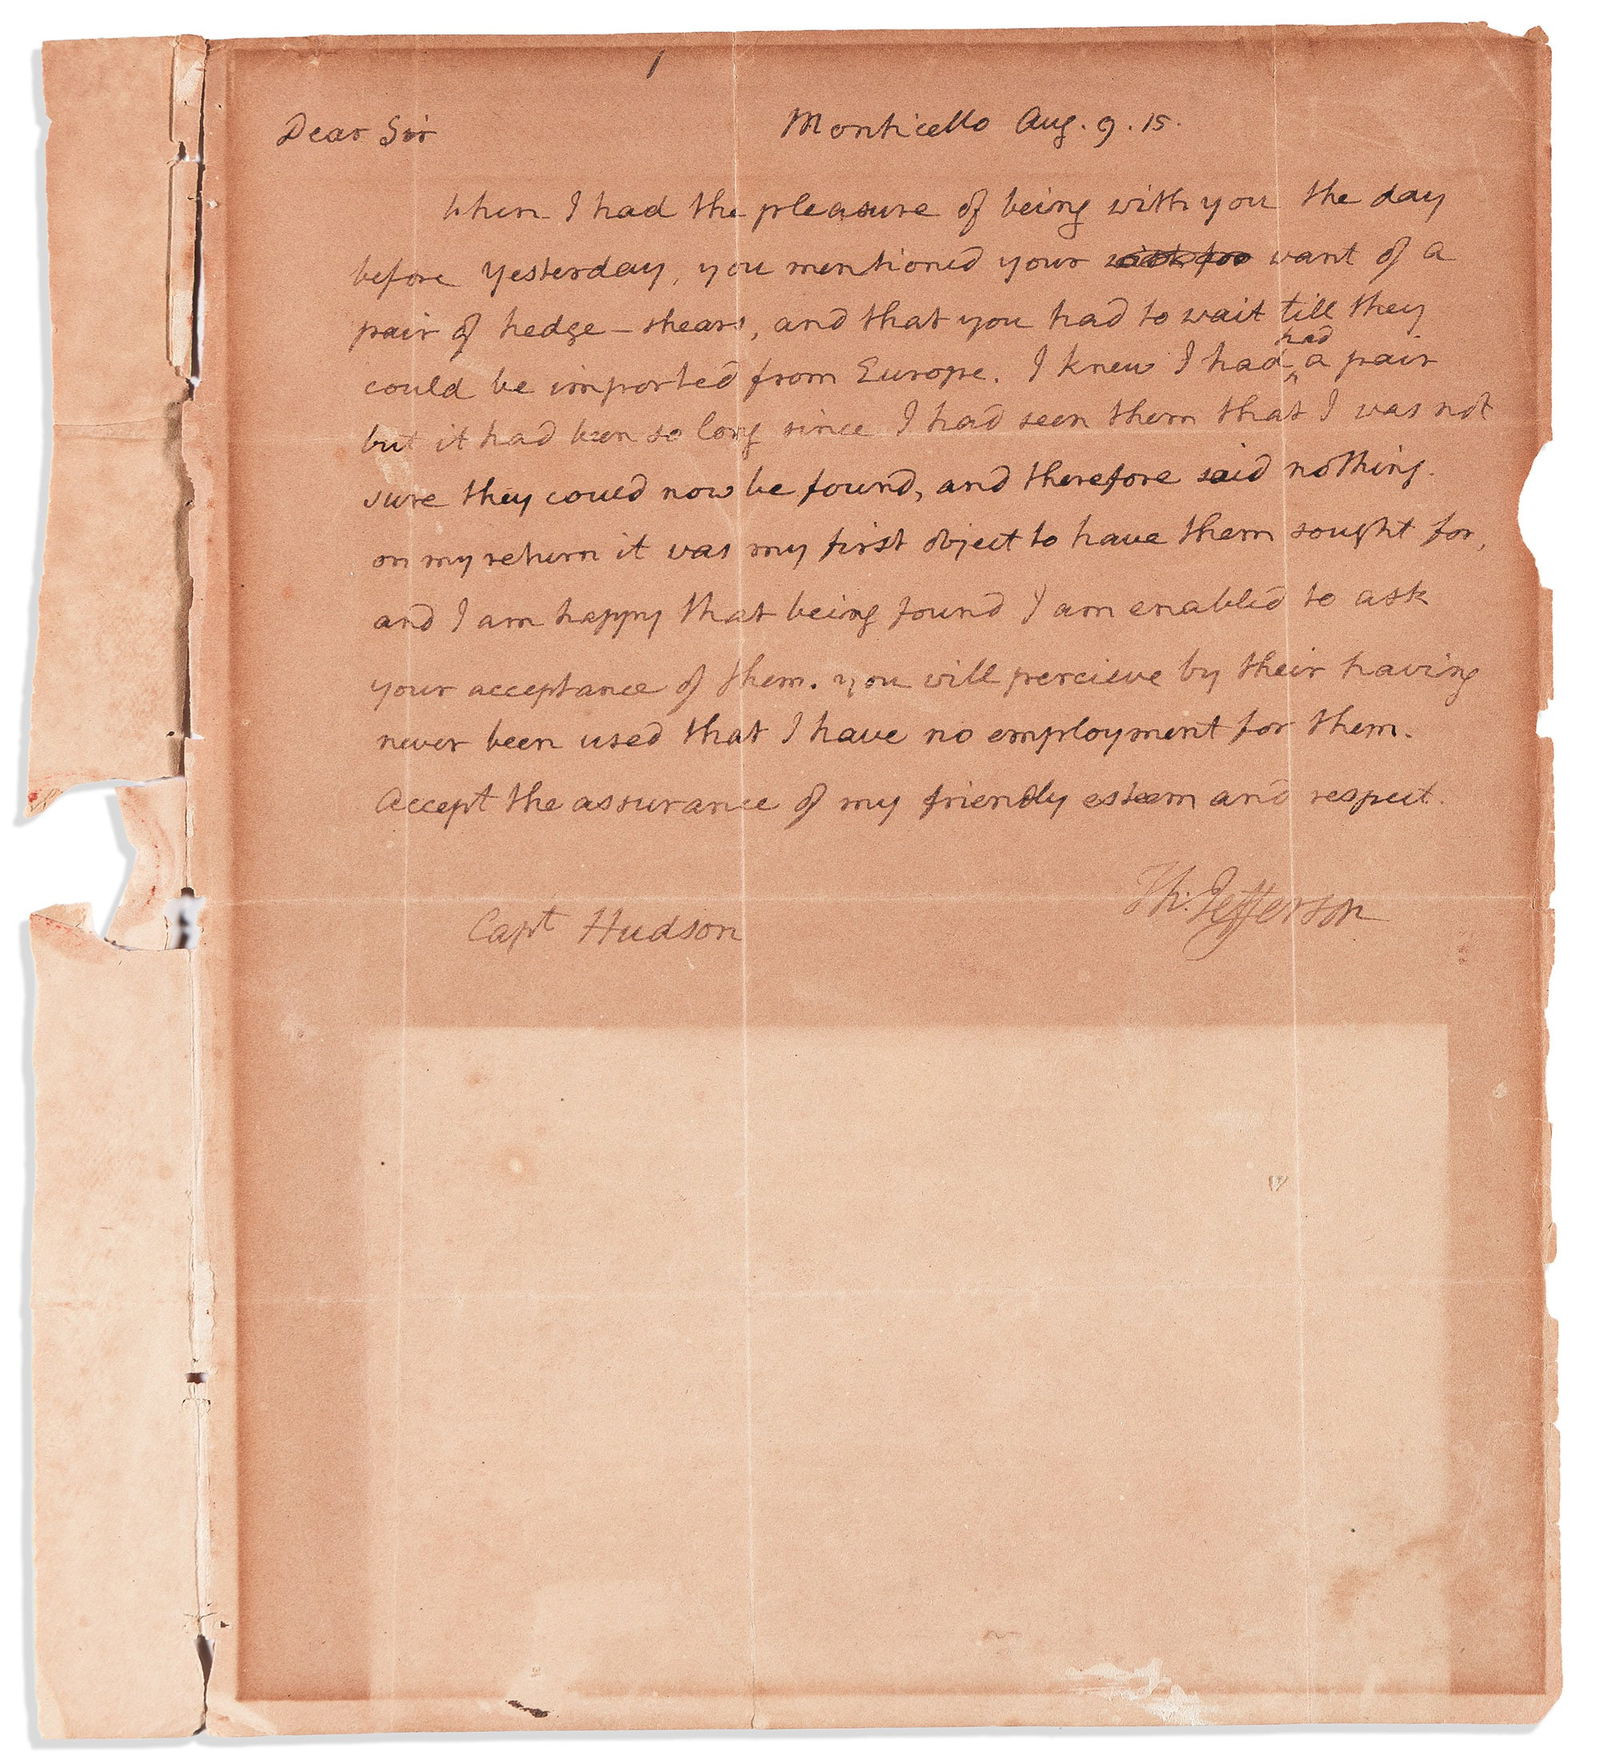 Dear Sir
Monticello Aug. 9. 15.
When I had the pleasure of being with you the day
before yesterday, you mentioned your want of a
pair of hedge-shears, and that you had to wait till they
could be imported from Europe. I knew I had had a pair
but it had been so long since I had seen them that I was not
sure they could now be found, and therefore said nothing.
on my return it was my first object to have them sought for,
and I am happy that being found I am enabled to ask
your acceptance of them. you will percieve by their having
never been used that I have no employment for them.
Accept the assurance of my friendly esteem and respect.
Th: Jefferson
Capt Hudson